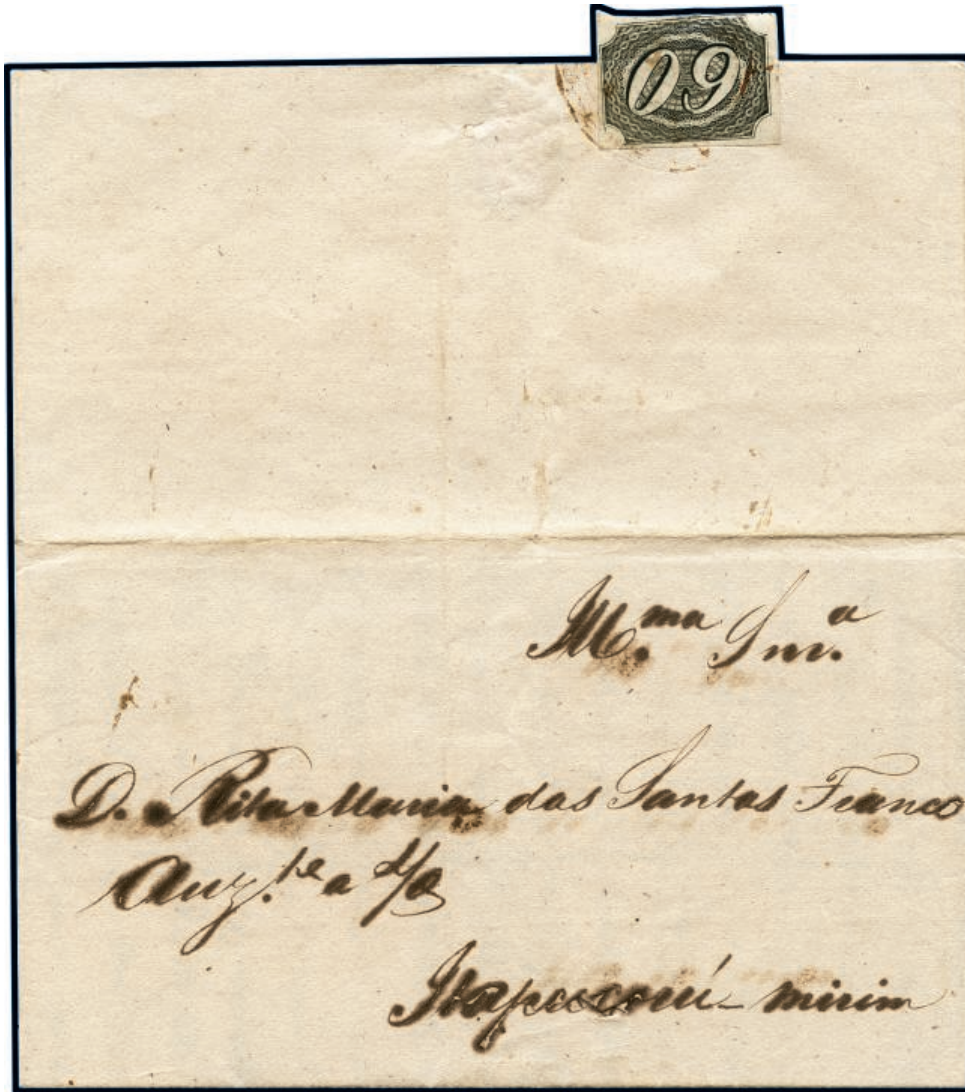 60
Ill.ma Snr.a
D. Rita Maria dos Santos Franco
Auz.te a
Itapucurú-mirim